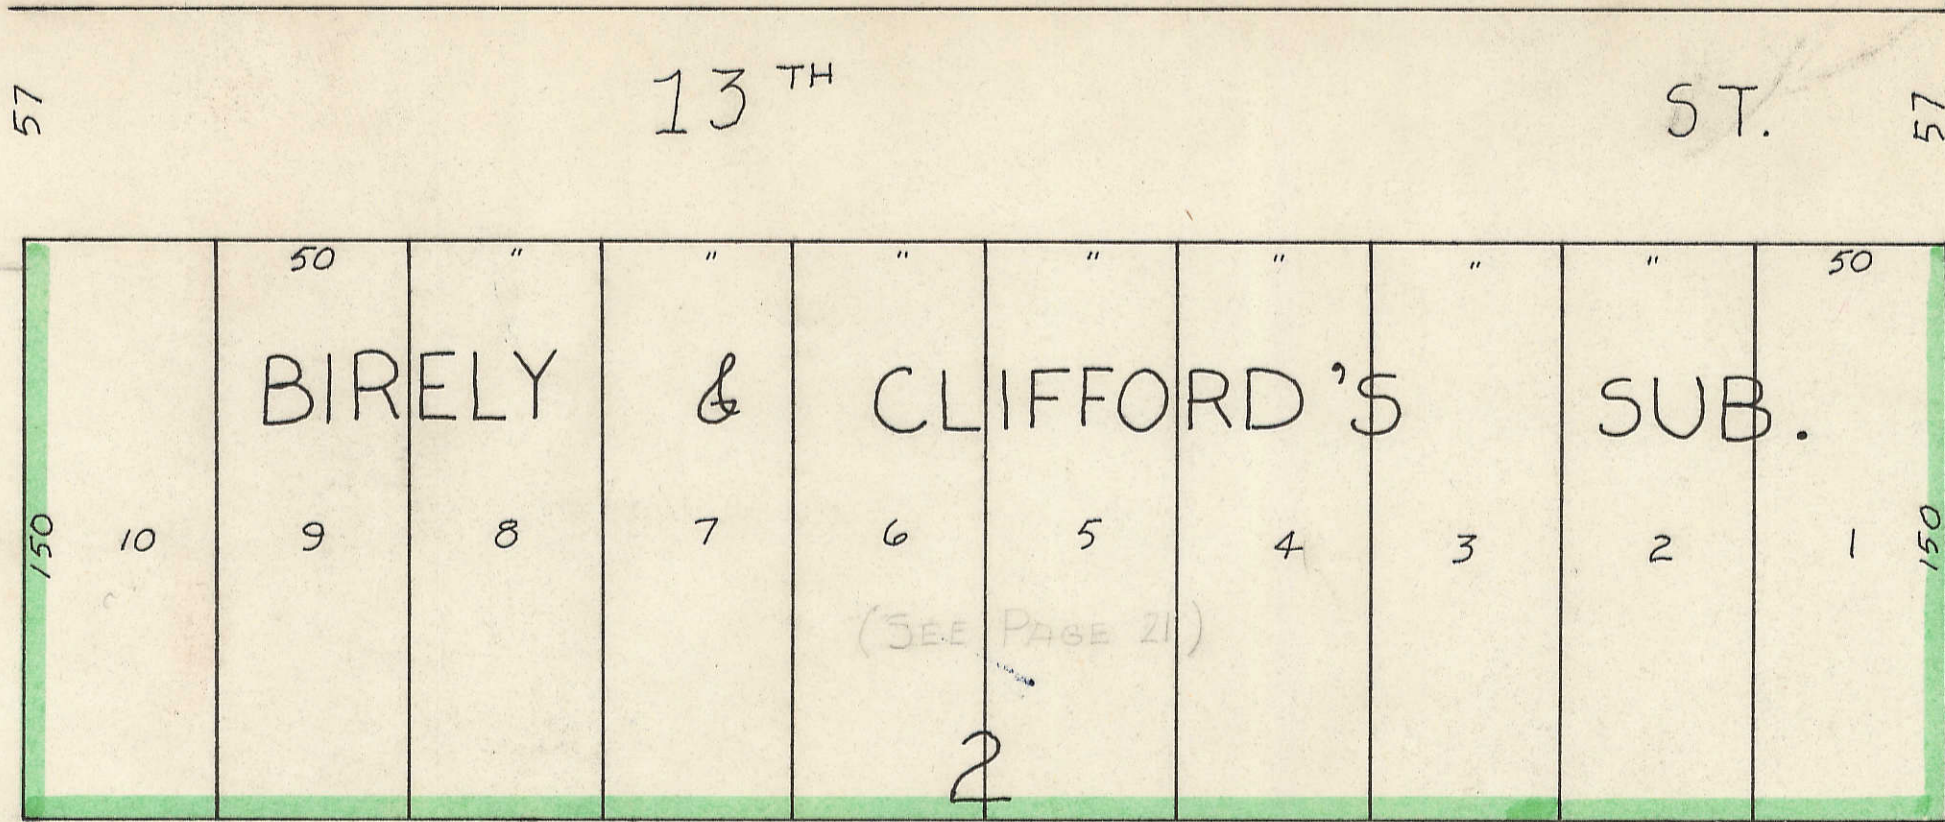 57 13TH ST. 57
50 " " " " " " " 50
BIRELY & CLIFFORD'S SUB.
150 10 9 8 7 6 5 4 3 2 1 150
(SEE PAGE 21)
2